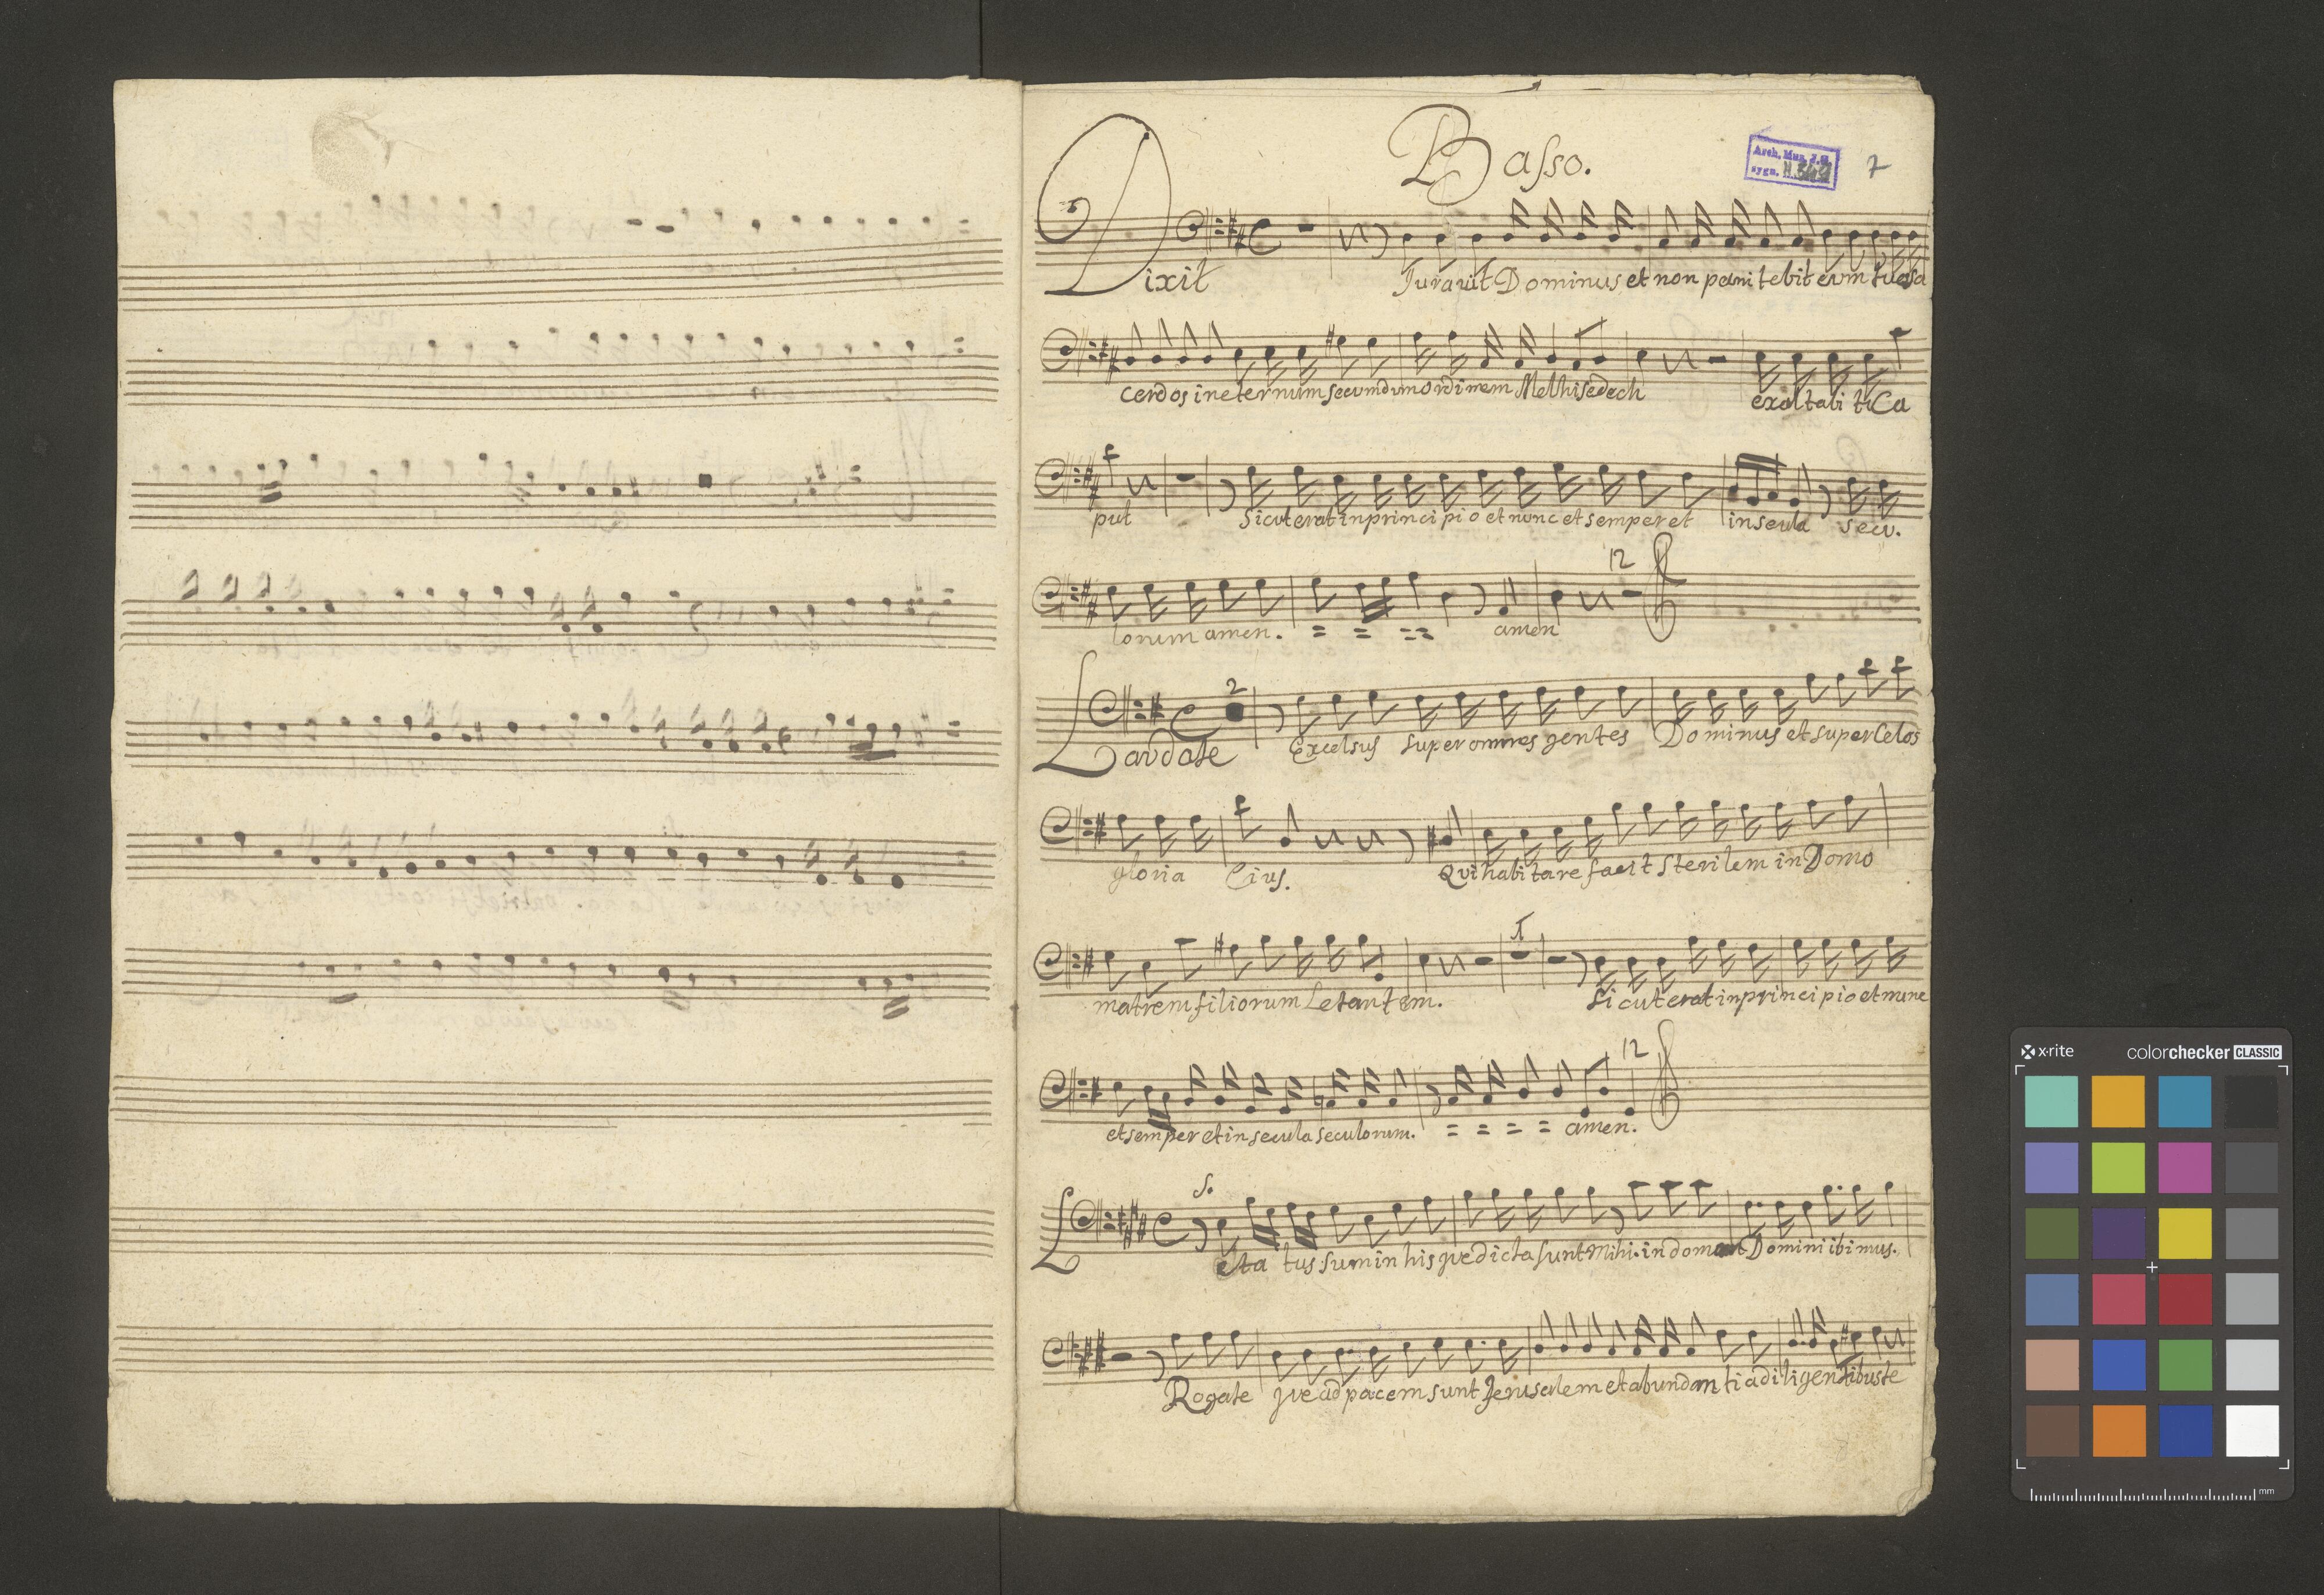 Basso.
Arch. Mus. J.G.
sygn. 7
Dixit Juravit Dominus et non penitebit eum tu es sa
cerdos in eternum secundum ordinem Melhisedech exaltabit Ca
put Sicut erat in principio et nunc et semper et in secula secu.
12
lorum amen. = = = = amen
2
Laudate Excelsus super omnes gentes Dominus et super Celos
gloria Eius. Qui habitare facit sterilem in Domo
1
matrem filiorum Letantem. Sicut erat in principio et nunc
12
et semper et in secula seculorum. = = = = amen.
S.
Letatus sum in his que dicta sunt Mihi. in domum Domini ibimus.
Rogate que ad pacem sunt Jerusalem et abundantia diligentibus te
x-rite colorchecker CLASSIC
mm